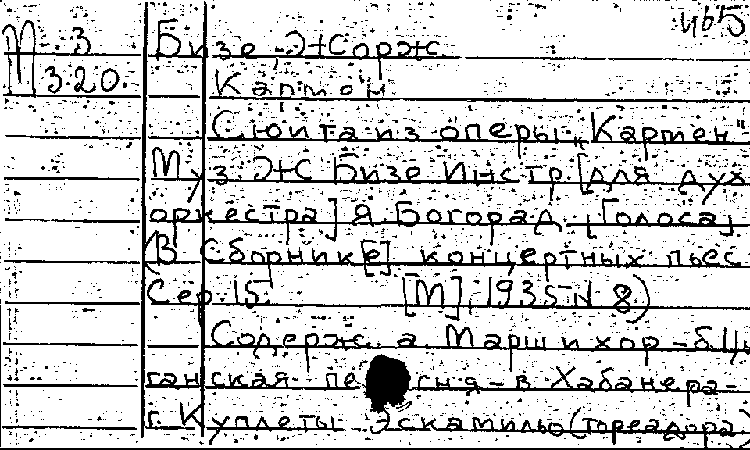 М. 3
320.
465
Бизе, Жорж
Кармен
Сюита из оперы „Кармен"
Муз. Ж Бизе Инстр. [для дух
оркестра] Я. Богорад. [Голоса]
(В Сборнике[е] концертных пьес
Сер. 15. [М], 1935 N 8)
Содерж. а. Марш и хор - б. Цы
ганская пе сня - в Хабанера -
г. Куплеты Эскамильо (тореадора)